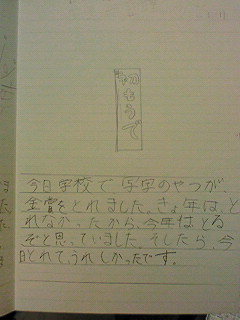 初もうで
今日学校で習字のやつが、
金賞をとれました。きょ年は、と
れなかったから、今年はとる
ぞと思っていました。そしたら、今
日とれてうれしかったです。